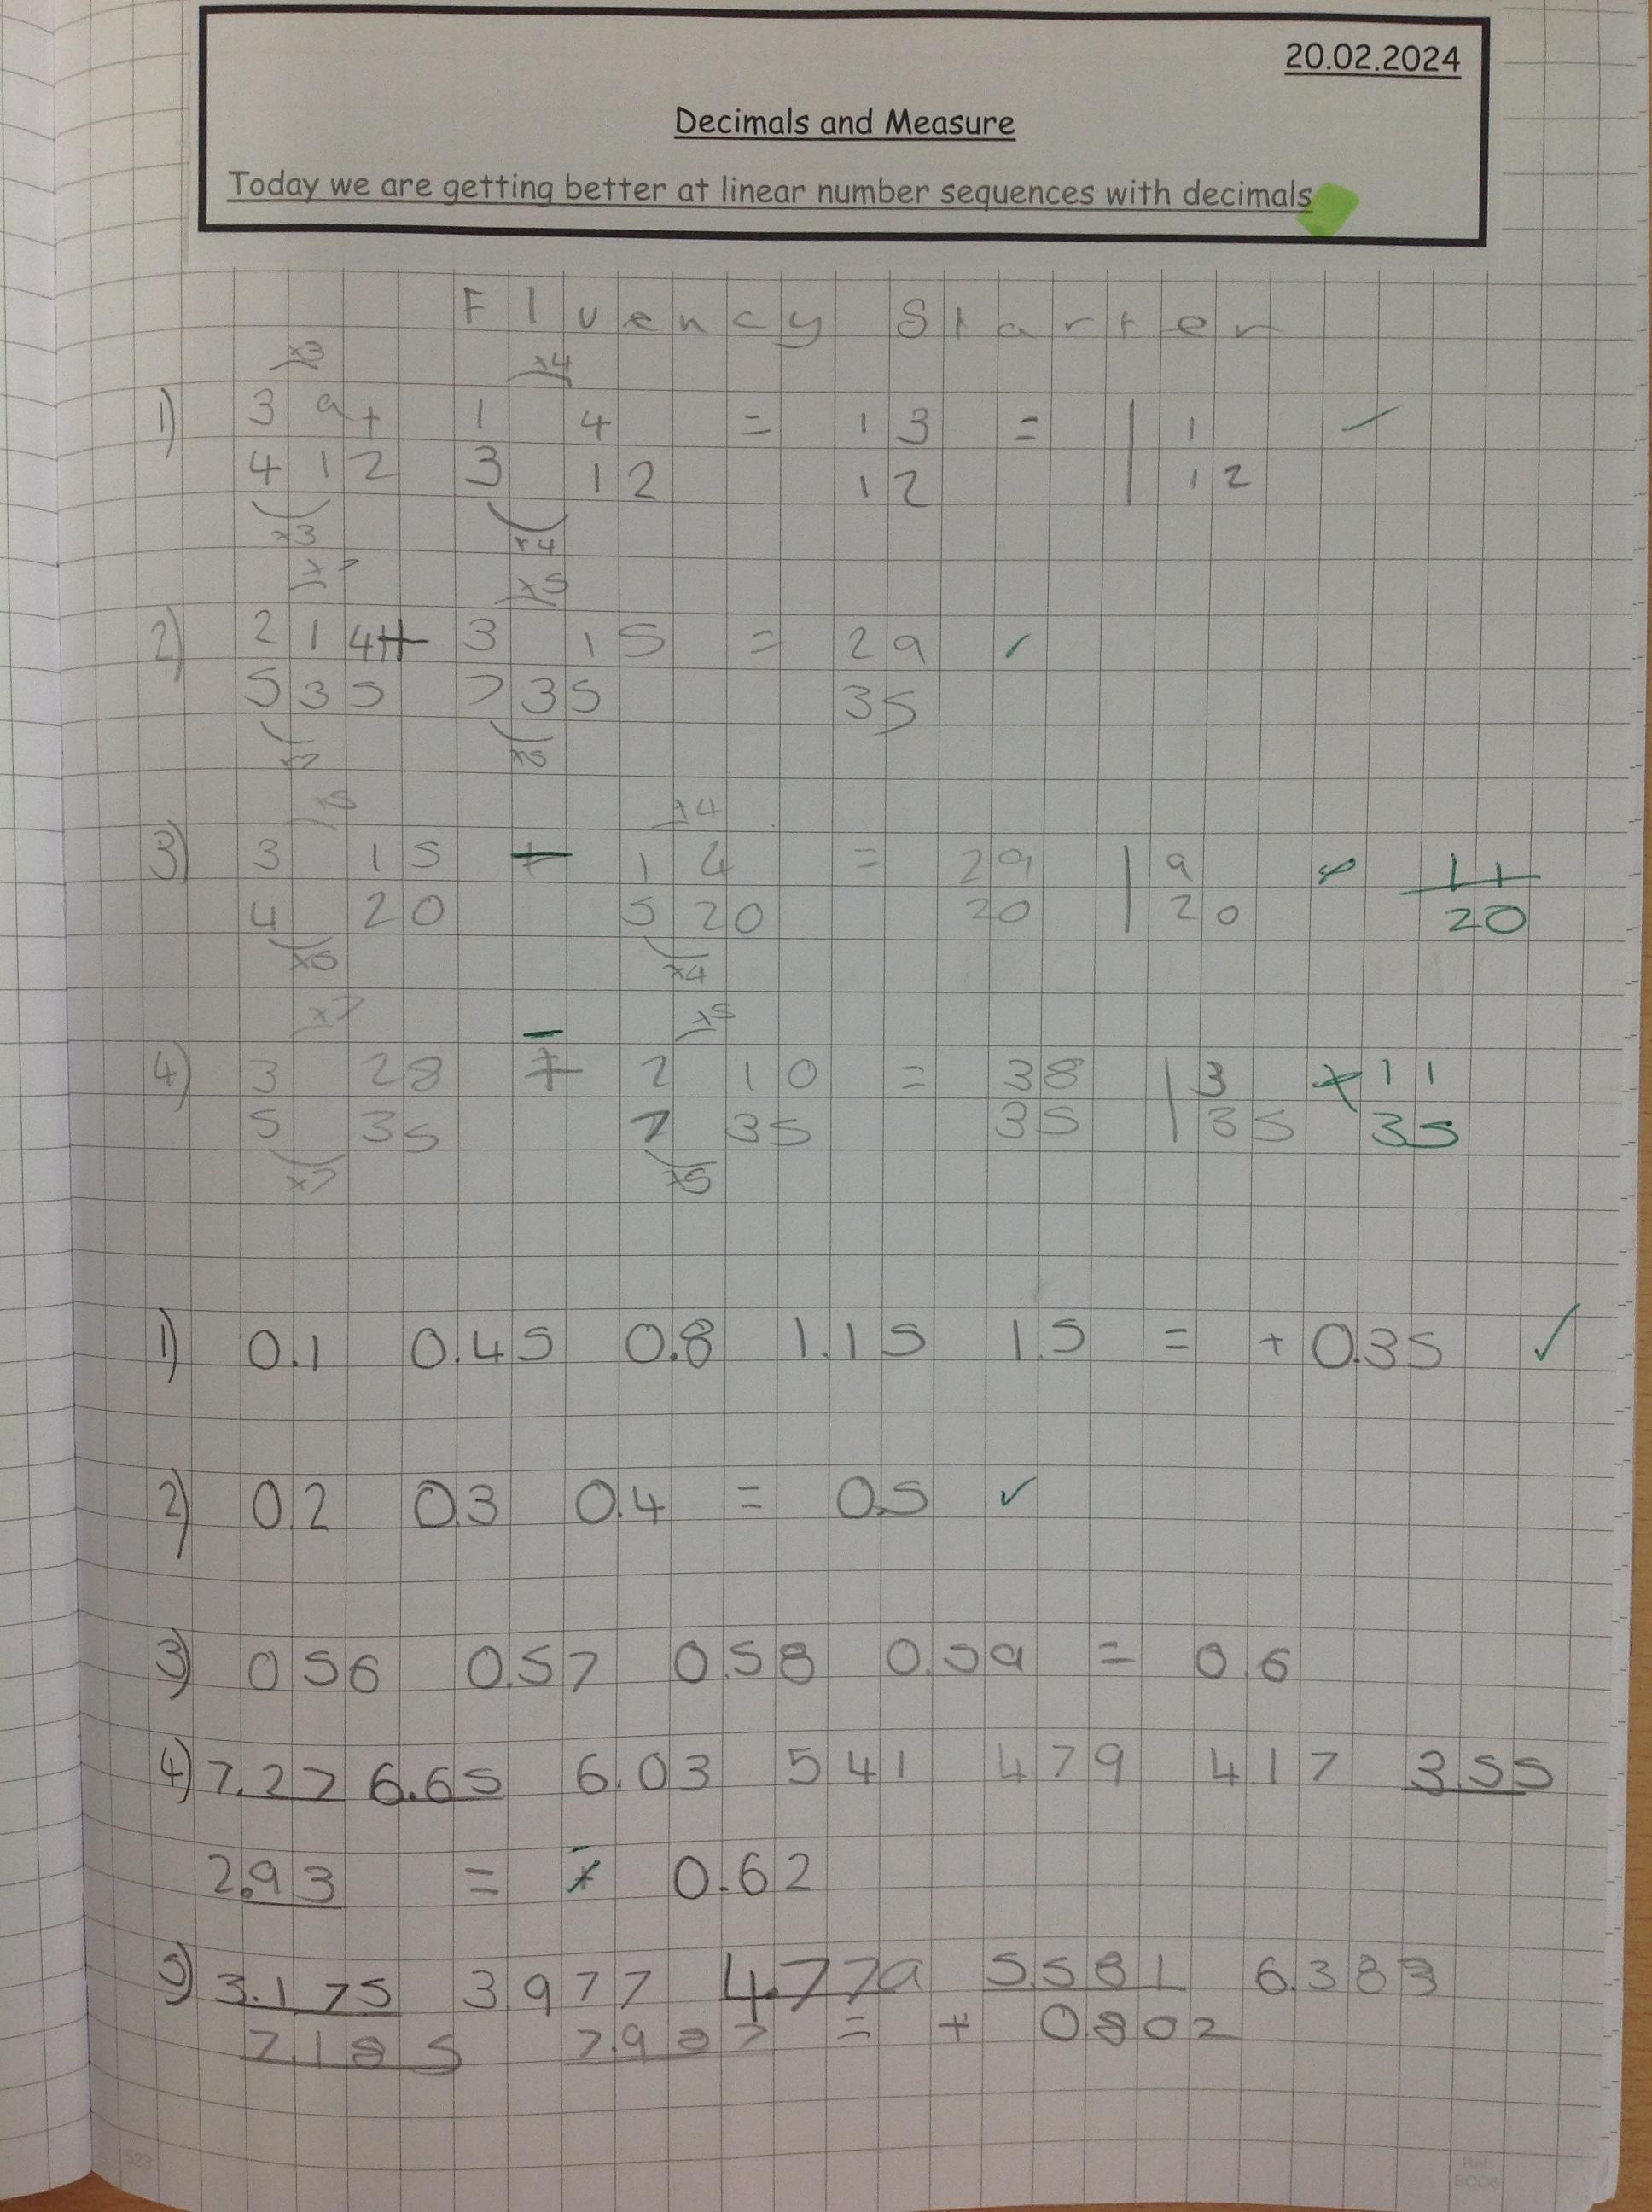 20.02.2024
Decimals and Measure
Today we are getting better at linear number sequences with decimals
Fluency Starter
x3 x4
1) 3 9 + 1 4 = 13 = 1 1
4 12 3 12 12 12
x3 x4
x7 x5
2) 2 14 + 3 15 = 29 ✓
5 35 7 35 35
x7 x5
x5 x4
3) 3 15 - 1 4 = 29 1 9 11
4 20 5 20 20 20 20
x5 x4
x7 - x5
4) 3 28 + 2 10 = 38 1 3 x 11
5 35 7 35 35 35 35
x7 x5
1) 0.1 0.45 0.8 1.15 1.5 = + 0.35 ✓
2) 0.2 0.3 0.4 = 0.5 ✓
3) 0.56 0.57 0.58 0.59 = 0.6
4) 7.27 6.65 6.03 5.41 4.79 4.17 3.55
2.93 = - 0.62
5) 3.175 3.977 4.779 5.581 6.383
7.185 7.987 = + 0.802